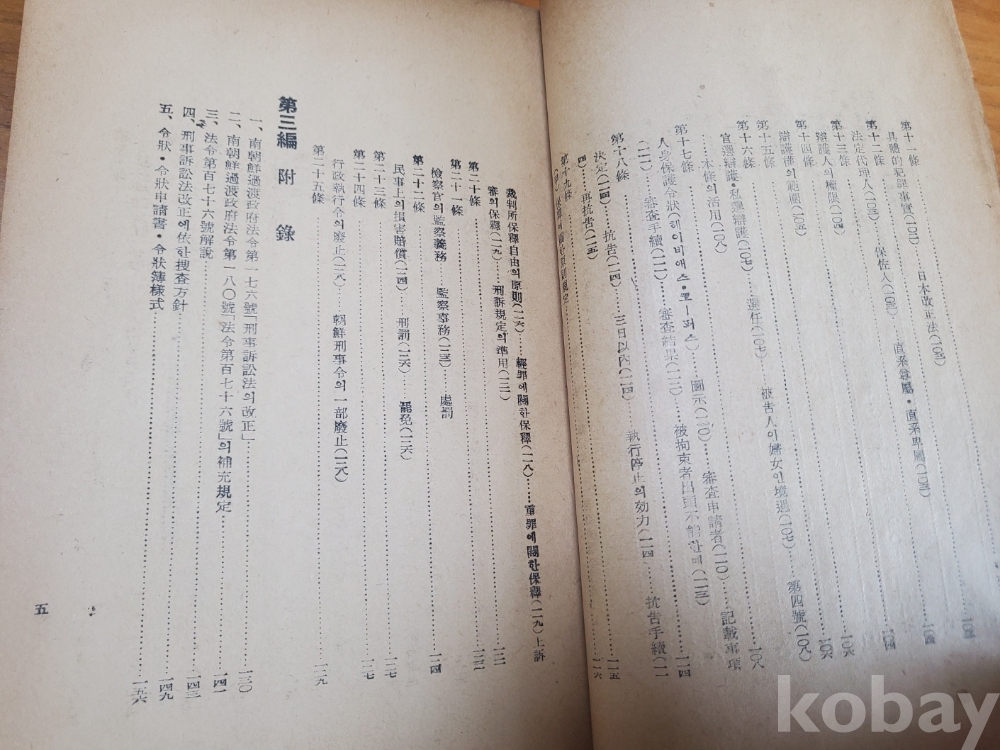 第十一條
具體的犯罪事實(一〇二)……日本改正法(一〇三)
第十二條
法定代理人(一〇三)・保佐人(一〇三)・直系尊屬・直系卑屬(一〇四)
第十三條
辯護人의權限(一〇五)
第十四條
辯護權의範圍(一〇五)
第十五條
第十六條
官選辯護・私選辯護(一〇七)……選任(一〇七)……被告人이婦女인境遇(一〇七)……第四號(一〇八)
本條의活用(一〇八)
第十七條
人身保護令狀(헤이비애스・코ー퍼스)……圖示(一一〇)……審査申請者(一一〇)……記載事項
(一一一)……審査手續(一一一)……審査結果(一一二)……被拘束者
第十八條
決定(一一四)……抗告(一一四)……三日以內(一一四)……執行停止의効力(一一四)……抗告手續(一一
四)……再抗告(一一五)
第十九條
裁判所保釋自由의原則(一一六)……輕罪에關한保釋(一一八)……重罪에關한保釋(一一九)上訴
審의保釋(一一九)……刑訴規定의準用(一二一)
第二十條……一二二
第二十一條……一二四
檢察官의監察義務 監察事務(一二三)……處罰
第二十二條
民事上의損害賠償(一二四)……刑罰(一二六)……罷免(一二六)
第二十三條……一二七
第二十四條……一二七
行政執行令의廢止(一二八)……朝鮮刑事令의一部廢止(一二八)
第二十五條……一二九
第三編 附錄
一、南朝鮮過渡政府法令第一七六號「刑事訴訟法의改正」……一三〇
二、南朝鮮過渡政府法令第一八〇號「法令第百七十六號」의補充規定……一四一
三、法令第百七十六號解說……一四三
四、刑事訴訟法改正에依한搜査方針……一四九
五、令狀・令狀申請書・令狀簿樣式……一五六
五
kobay